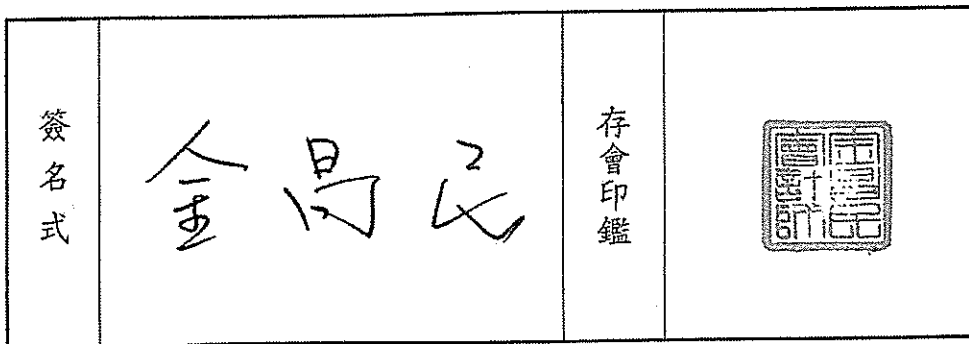 簽名式
金昌民
存會印鑑